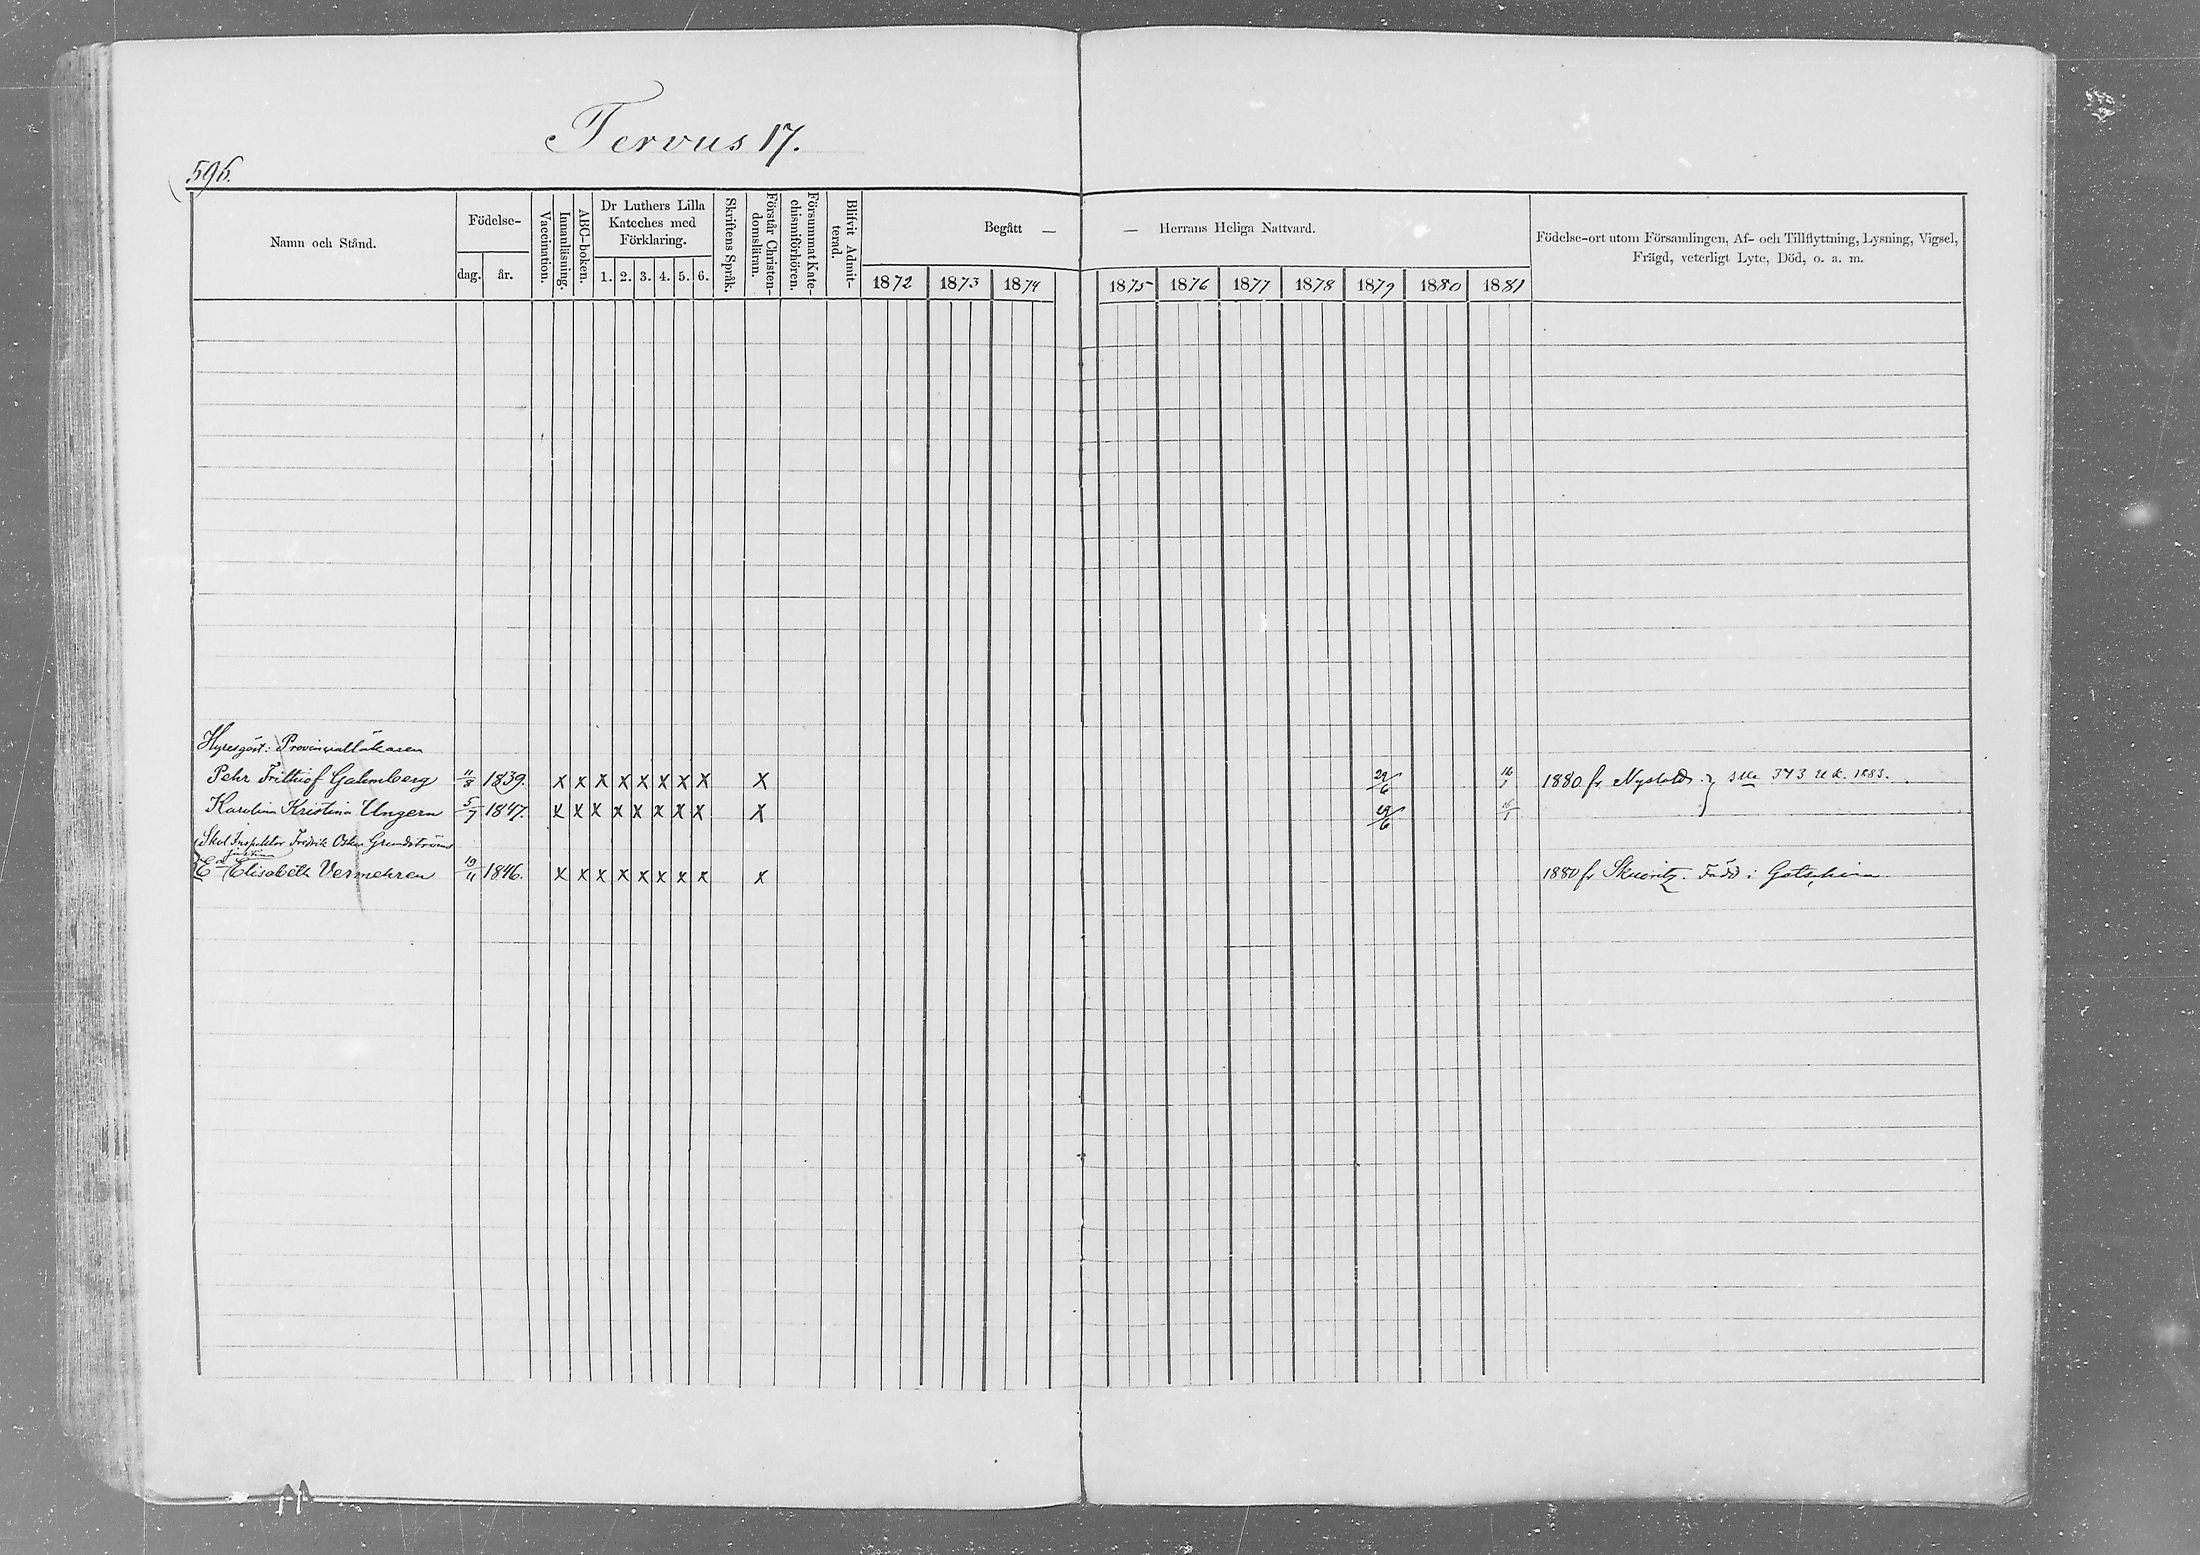 Tervus 17.
596.
Namn och Stånd.
Födelse-
dag.
år.
Vaccination.
Innanläsning.
ABC-boken.
Dr Luthers Lilla
Kateches med
Förklaring.
1. 2. 3. 4. 5. 6.
Skriftens Språk.
Förstår Christen-
domsläran.
Försummat Kate-
chismiförhören.
Blifvit Admit-
terad.
Begått — — Herrans Heliga Nattvard.
1872 1873 1874 1875 1876 1877 1878 1879 1880 1881
Födelse-ort utom Församlingen, Af- och Tillflyttning, Lysning, Vigsel,
Frägd, veterligt Lyte, Död, o. a. m.
Hyresgäst: Provinsialläkaren
Pehr Frithiof Gahmberg 11/8 1839. x x x x x x x x x 29/6 16/1 1880 fr Nystad 343 1883.
Karolina Kristina Ungern 5/7 1847. x x x x x x x x x 29/6 16/1
Skol Inspektor Fredrik Oskar Grundströms
E Elisabeth Vermehren 19/11 1846. x x x x x x x x x 1880 fr Skuoritz. Född i